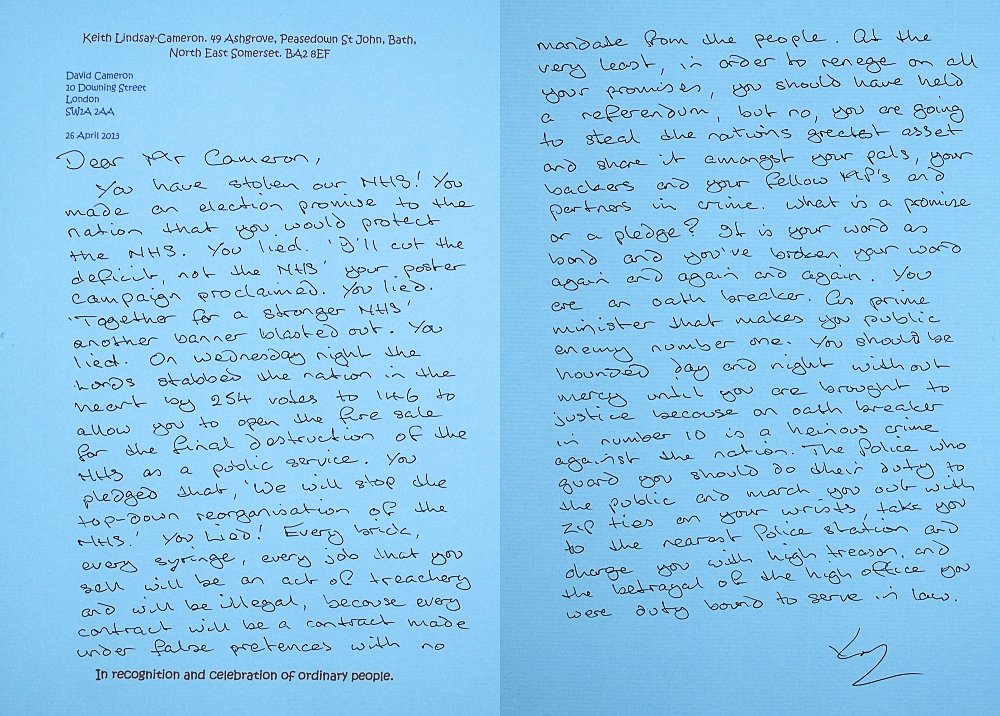 Keith Lindsay-Cameron. 49 Ashgrove, Peasedown St John, Bath,
North East Somerset. BA2 8EF
David Cameron
10 Downing Street
London
SW1A 2AA
26 April 2013
Dear Mr Cameron,
You have stolen our NHS! You
made an election promise to the
nation that you would protect
the NHS. You lied. 'I'll cut the
deficit, not the NHS' your poster
campaign proclaimed. You lied.
'Together for a stronger NHS'
another banner blasted out. You
lied. On Wednesday night the
Lords stabbed the nation in the
heart by 254 votes to 146 to
allow you to open the fire sale
for the final destruction of the
NHS as a public service. You
pledged that, 'We will stop the
top-down reorganisation of the
NHS.' You Lied! Every brick,
every syringe, every job that you
sell will be an act of treachery
and will be illegal, because every
contract will be a contract made
under false pretences with no
In recognition and celebration of ordinary people.
mandate from the people. At the
very least, in order to renege on all
your promises, you should have held
a referendum, but no, you are going
to steal the nations greatest asset
and share it amongst your pals, your
backers and your fellow MP's and
partners in crime. What is a promise
or a pledge? It is your word as
bond and you've broken your word
again and again and again. You
are an oath breaker. As prime
minister that makes you public
enemy number one. You should be
hounded day and night without
mercy until you are brought to
justice because an oath breaker
in number 10 is a heinous crime
against the nation. The Police who
guard you should do their duty to
the public and march you out with
zip ties on your wrists, take you
to the nearest Police station and
charge you with high treason, and
the betrayal of the high office you
were duty bound to serve in law.